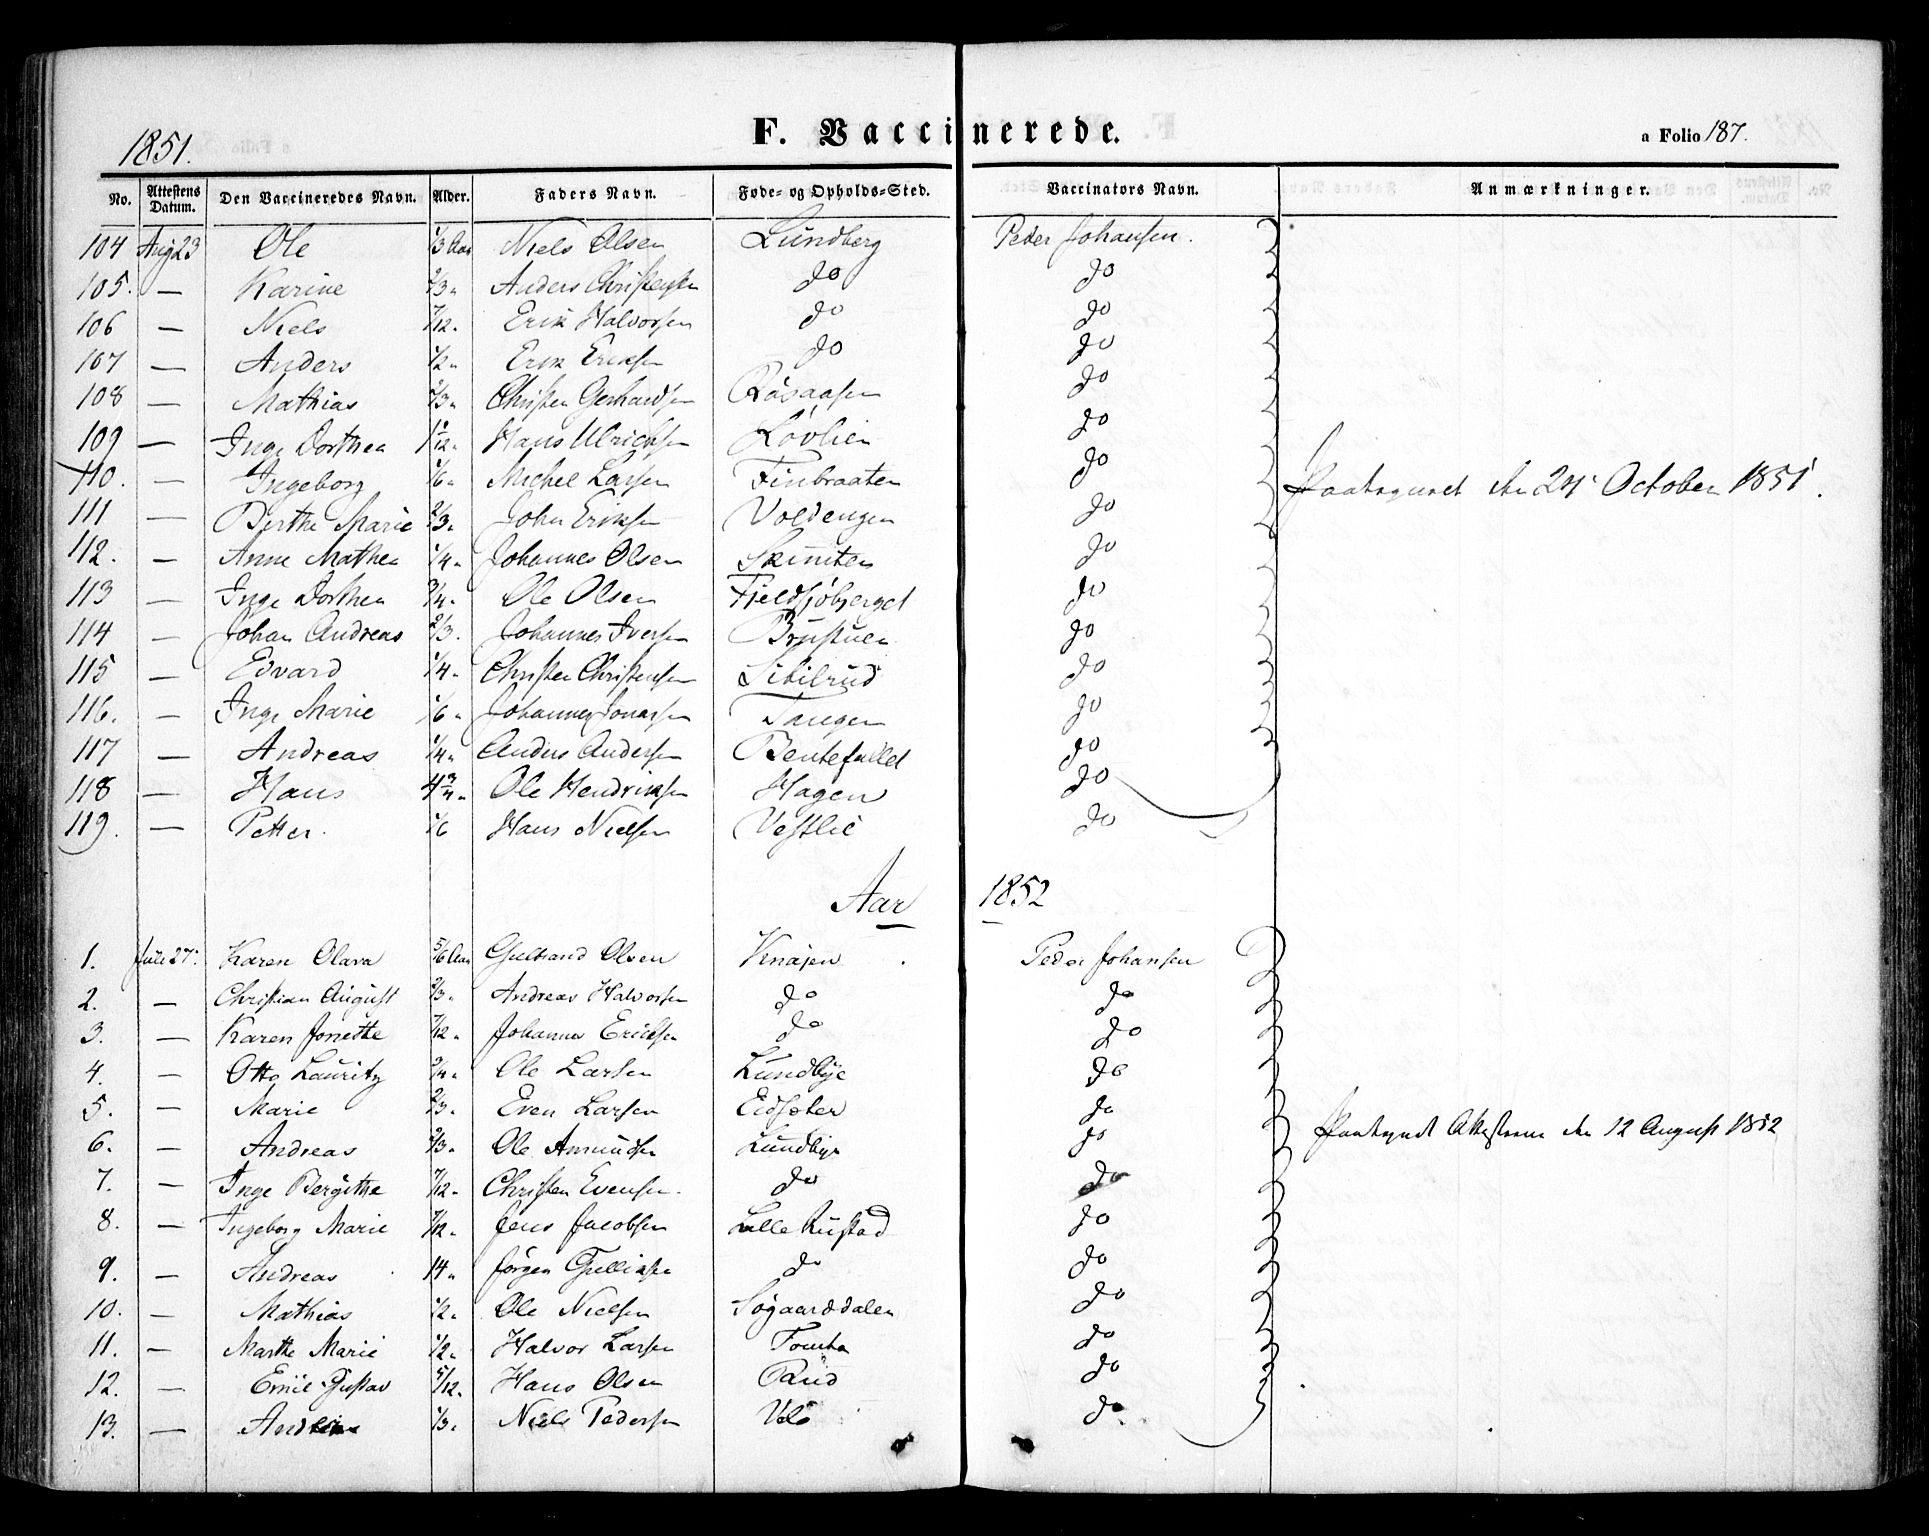 1851.
F. Vaccinerede.
a Folio 187.
No. Attestens Datum. Den Vaccineredes Navn. Alder. Faders Navn. Føde- og Opholds-Sted. Vaccinators Navn. Anmærkninger.
104 Aug 23 Ole 1/3 Aar Niels Olsen Lundberg Peder Johansen.
105. — Karine 2/3 " Anders Christensen do do
106 — Niels 7/12 " Erik Halvorsen do do
107 — Anders 1/2 " Erik Eriksen do do
108 — Mathias 2/3 " Christen Gerhardsen Røsaasen do
109 — Inge Dorthea Hans Ulrichsen Løvlien do
110. — Ingeborg 1/6 " Michel Larsen Finbraaten do Paategnet den 24 October 1851.
111 — Berthe Marie 2/3 " John Eriksen Voldengen do
112. — Anne Mathea 1/4 " Johannes Olsen do
113 — Inge Dorthea 3/4 " Ole Olsen Fjeldsjøbjerget do
114 — Johan Andreas 2/3. Johannes Iversen Brustuen do
115 — Edvard 1/4 " Christen Christensen Sibilrud do
116. — Inge Marie 1/6 " Johannes Jonassen Tangen do
117 — Andreas 1/4 " Anders Andersen do
118 — Hans 4 3/4 " Ole Hendriksen Hagen do
119. — Petter. 1/6 Hans Nielsen Vestlie do
Aar 1852
1. Juli 27. Karen Olava 5/6 Aar Gulbrand Olsen Knajen Peder Johansen
2. — Christian August 2/3 " Andreas Halvorsen do do
3. — Karen Jonette 7/12 " Johannes Ericksen do do
4. — Otto Lauritz 3/4 " Ole Larsen Lundbye do
5. — Marie 2/3 " Even Larsen Eidsæter do
6. — Andreas 2/3 " Ole Amundsen Lundbye do Paategnet Attesterne den 12 August 1852
7. — Inge Bergithe 7/12 " Christen Evensen. do do
8. — Ingeborg Marie 7/12 " Jens Jacobsen Lille Rustad do
9. — Andreas 14 " Jørgen Gulliksen do do
10. — Mathias 1/2 " Ole Nielsen Søgaarddalen do
11. — Marthe Marie 1/2 " Halvor Larsen Tomta do
12. — Emil Gustav 5/12 " Hans Olsen Rud do
13. — 1/3 " Niels Pedersen do.